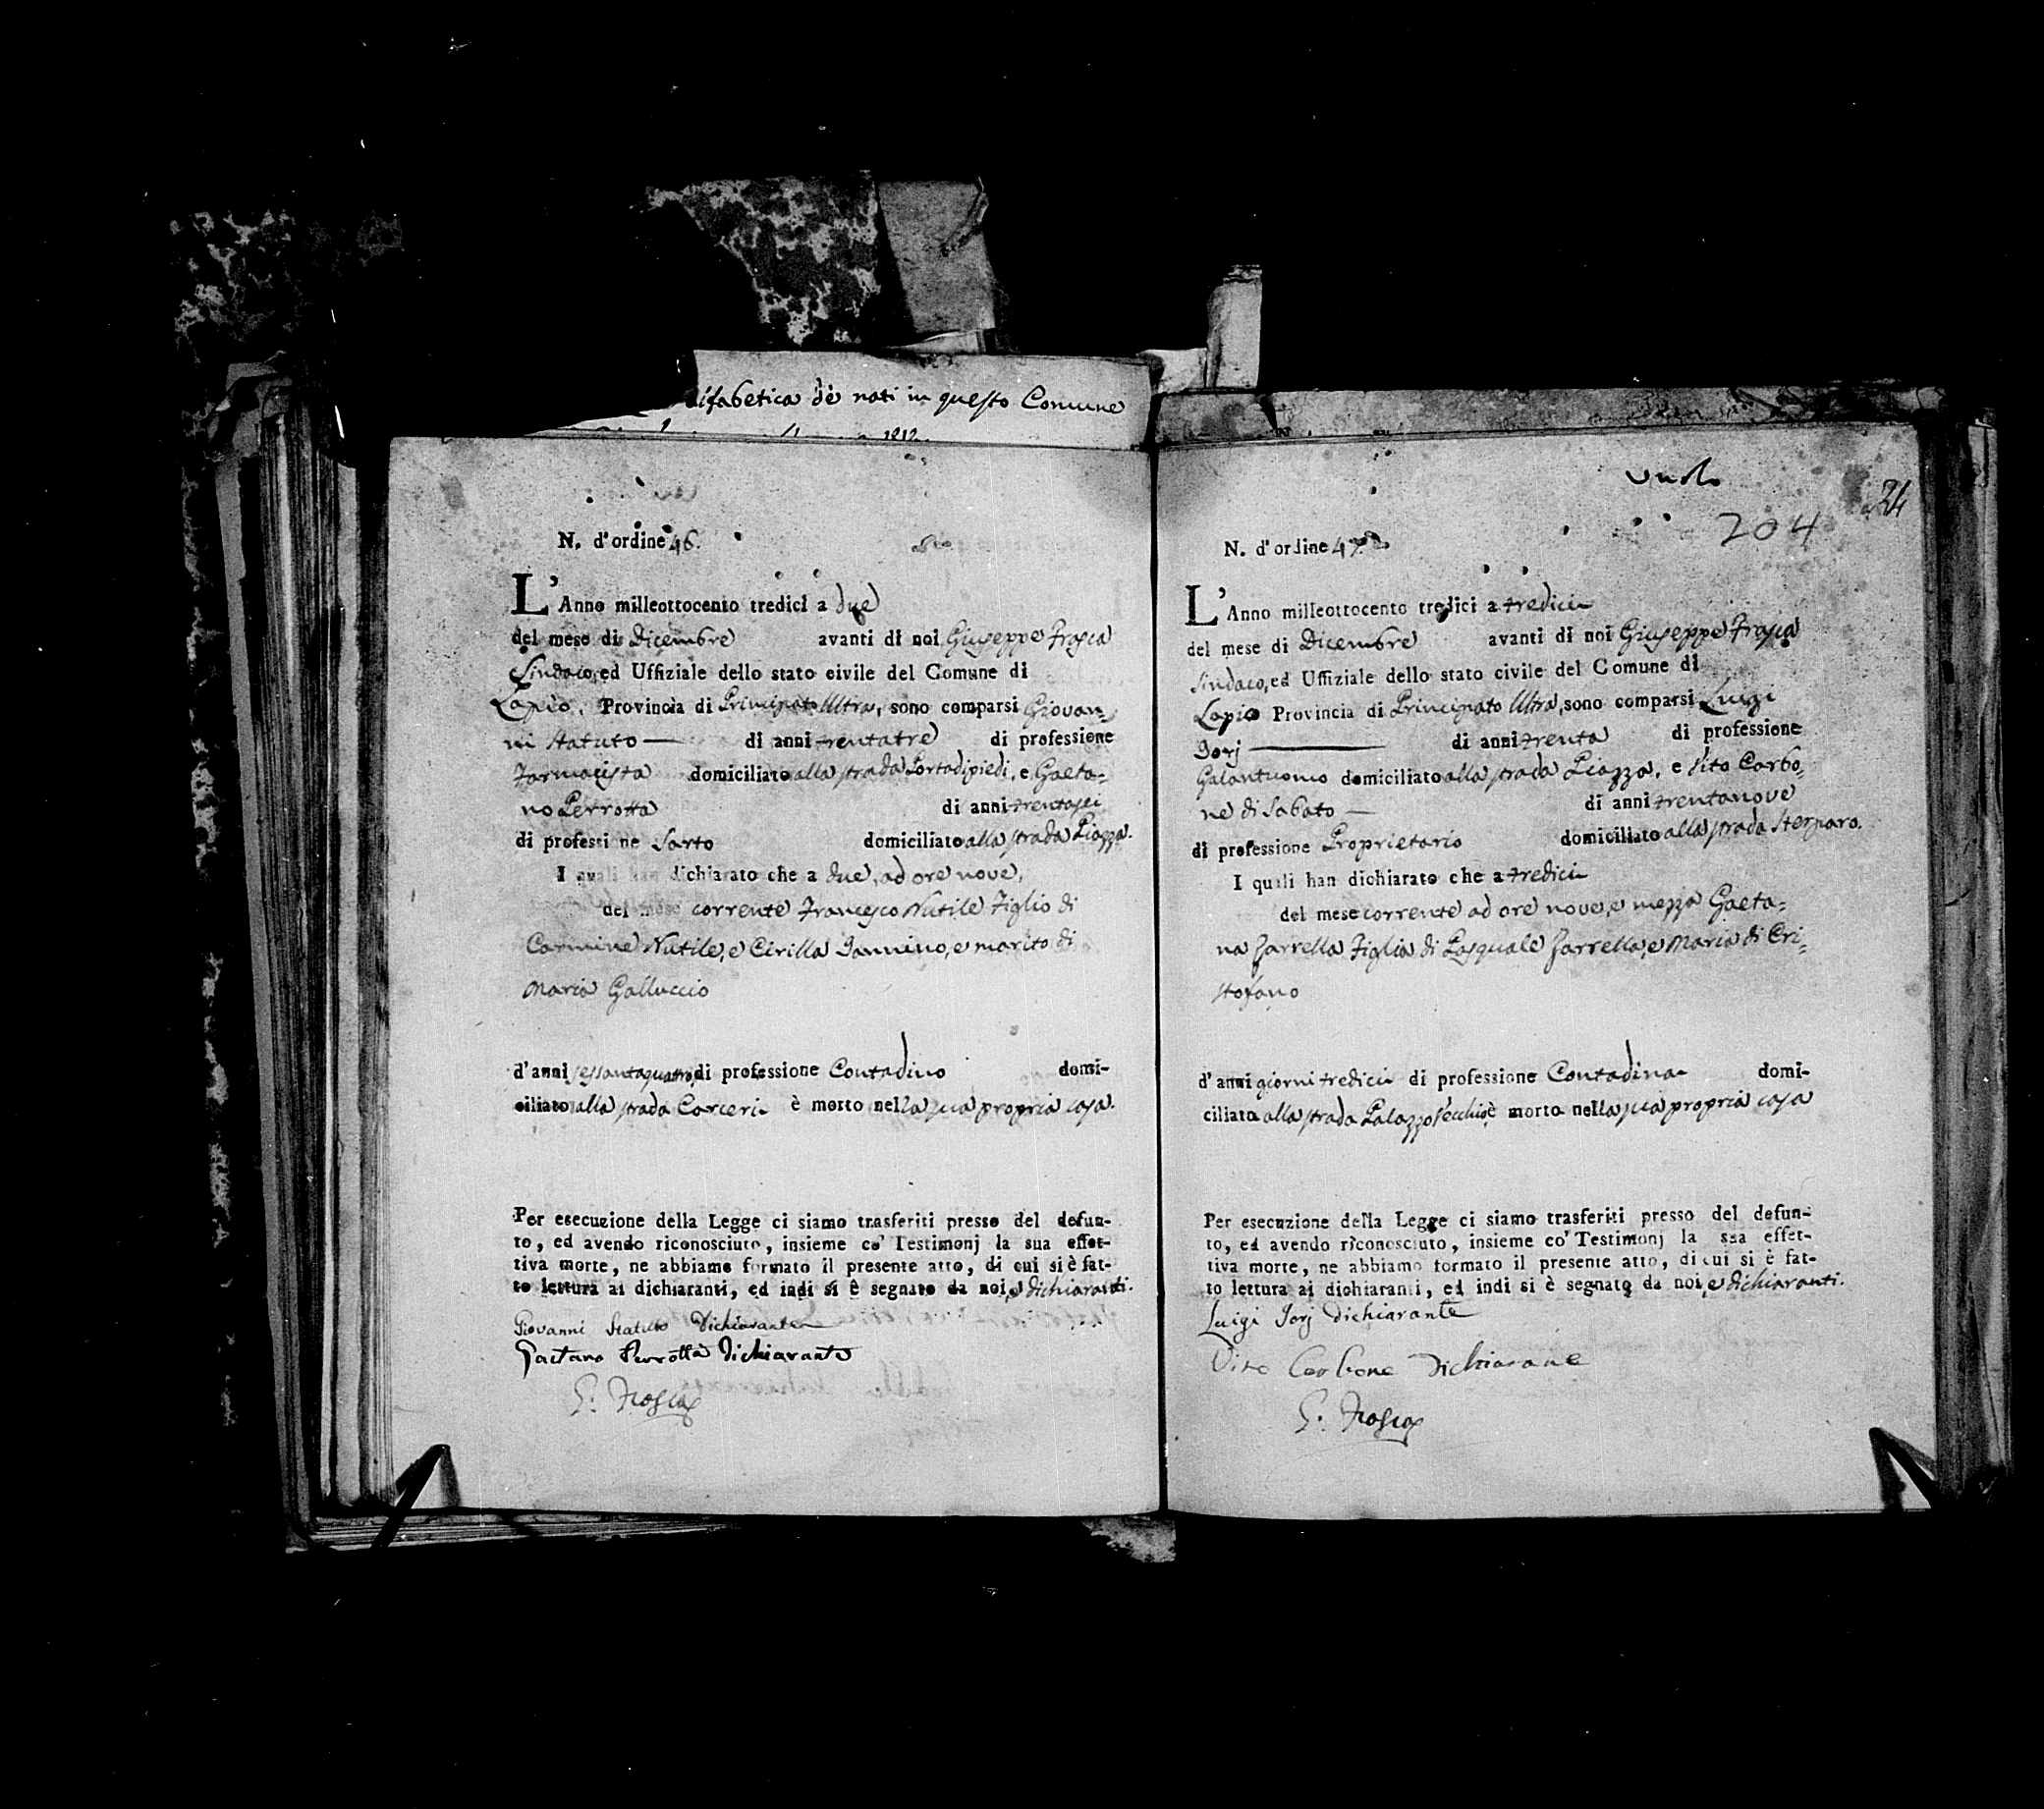 alfabetica de nati in questo Comune
1812
N. d'ordine 46.
L'Anno milleottocento tredici a due
del mese di Dicembre avanti di noi Giuseppe Frosca
Sindaco, ed Uffiziale dello stato civile del Comune di
Lapio, Provincia di Principato Ultra, sono comparsi Giovan-
ni Statuto — di anni trentatre di professione
Farmacista domiciliato alla strada Portadipiedi, e Gaeta-
no Perrotta di anni trentasei
di professione Sarto domiciliato alla strada Piazza.
I quali han dichiarato che a due, ad ore nove,
del mese corrente Francesco Nutile Figlio di
Carmine Nutile, e Cirilla Iannino, e marito di
Maria Galluccio
d'anni sessantaquattro, di professione Contadino domi-
ciliato alla strada Carceri è morto nella sua propria casa.
Per esecuzione della Legge ci siamo trasferiti presso del defun-
to, ed avendo riconosciuto, insieme co' Testimonj la sua effet-
tiva morte, ne abbiamo formato il presente atto, di cui si è fat-
to lettura ai dichiaranti, ed indi si è segnato da noi, e dichiaranti.
Giovanni Statuto Dichiarante
Gaetano Perrotta Dichiarante
G. Frosca
24
204
N. d'ordine 47
L'Anno milleottocento tredici a tredici
del mese di Dicembre avanti di noi Giuseppe Frosca
Sindaco, ed Uffiziale dello stato civile del Comune di
Lapio Provincia di Principato Ultra, sono comparsi Luigi
Iorj — di anni trenta di professione
Galantuomo domiciliato alla strada Piazza, e Vito Carbo-
ne di Sabato — di anni trentanove
di professione Proprietario domiciliato alla strada Sterparo.
I quali han dichiarato che a tredici
del mese corrente ad ore nove, e mezza Gaeta-
na Zarrella Figlia di Pasquale Zarrella, e Maria di Cri-
stofano
d'anni giorni tredici di professione Contadina domi-
ciliata alla strada Palazzo Vecchio, è morta nella sua propria casa
Per esecuzione della Legge ci siamo trasferiti presso del defun-
to, ed avendo riconosciuto, insieme co' Testimonj la sua effet-
tiva morte, ne abbiamo formato il presente atto, di cui si è fat-
to lettura ai dichiaranti, ed indi si è segnato da noi, e dichiaranti.
Luigi Iorj dichiarante
Vito Carbone Dichiarane
G. Frosca